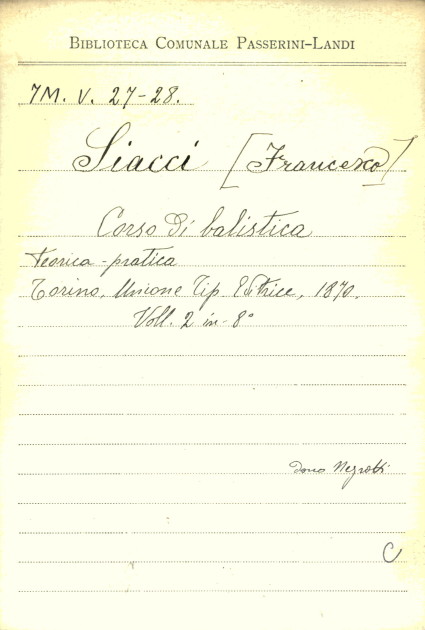 BIBLIOTECA COMUNALE PASSERINI-LANDI
7M. V. 27-28.
Siacci [Francesco]
Corso di balistica
teorica-pratica
Torino, Unione Tip. Editrice, 1870.
Voll. 2 in-8°
Dono
C